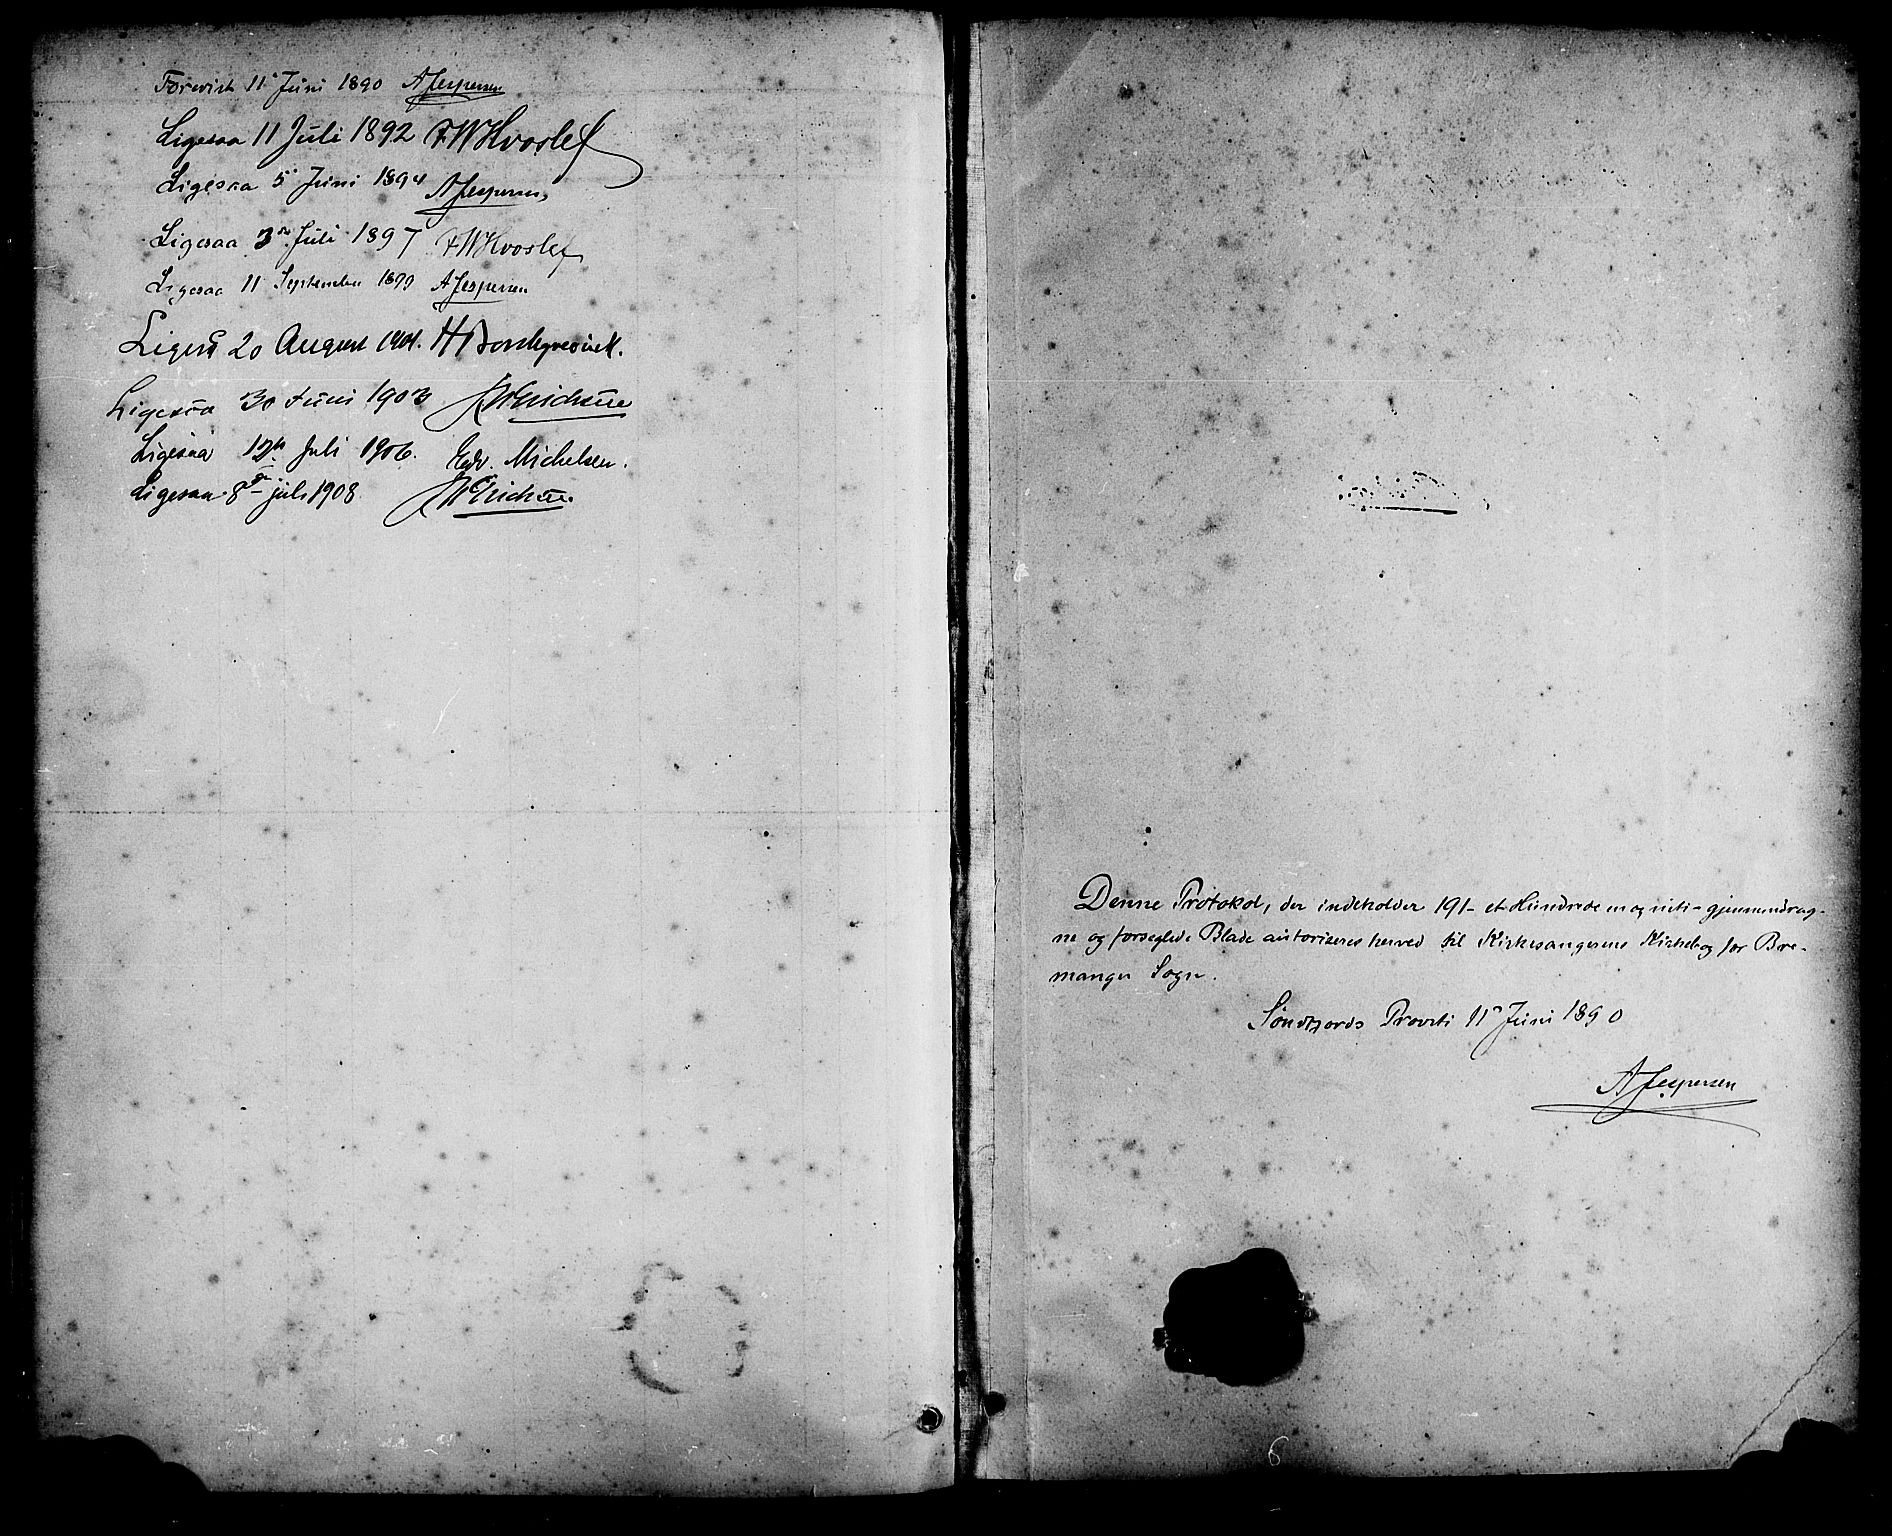 Forevist 11 Juni 1890 AJespersen
Ligesaa 11 Juli 1892 FWHvoslef
Ligesaa 5 Juni 1894 AJespersen
Ligesaa 3die Juli 1897 FWHvoslef
Ligesaa 11 September 1899 AJespersen
Ligesaa 20 August 1901. HBorchgrevink.
Ligesaa 30 Juni 1903 Erichsen
Ligesaa 12te Juli 1906. Edv. Michelsen.
Ligesaa 8de juli 1908 Erichsen
Denne Protokol, der indeholder 191 - et Hundrede en og niti - gjennemdrag-
ne og forseglede Blade autoriseres herved til Kirkesangerens Kirkebog for Bre-
manger Sogn.
Søndfjords Provsti 11 Juni 1890
AJespersen
6